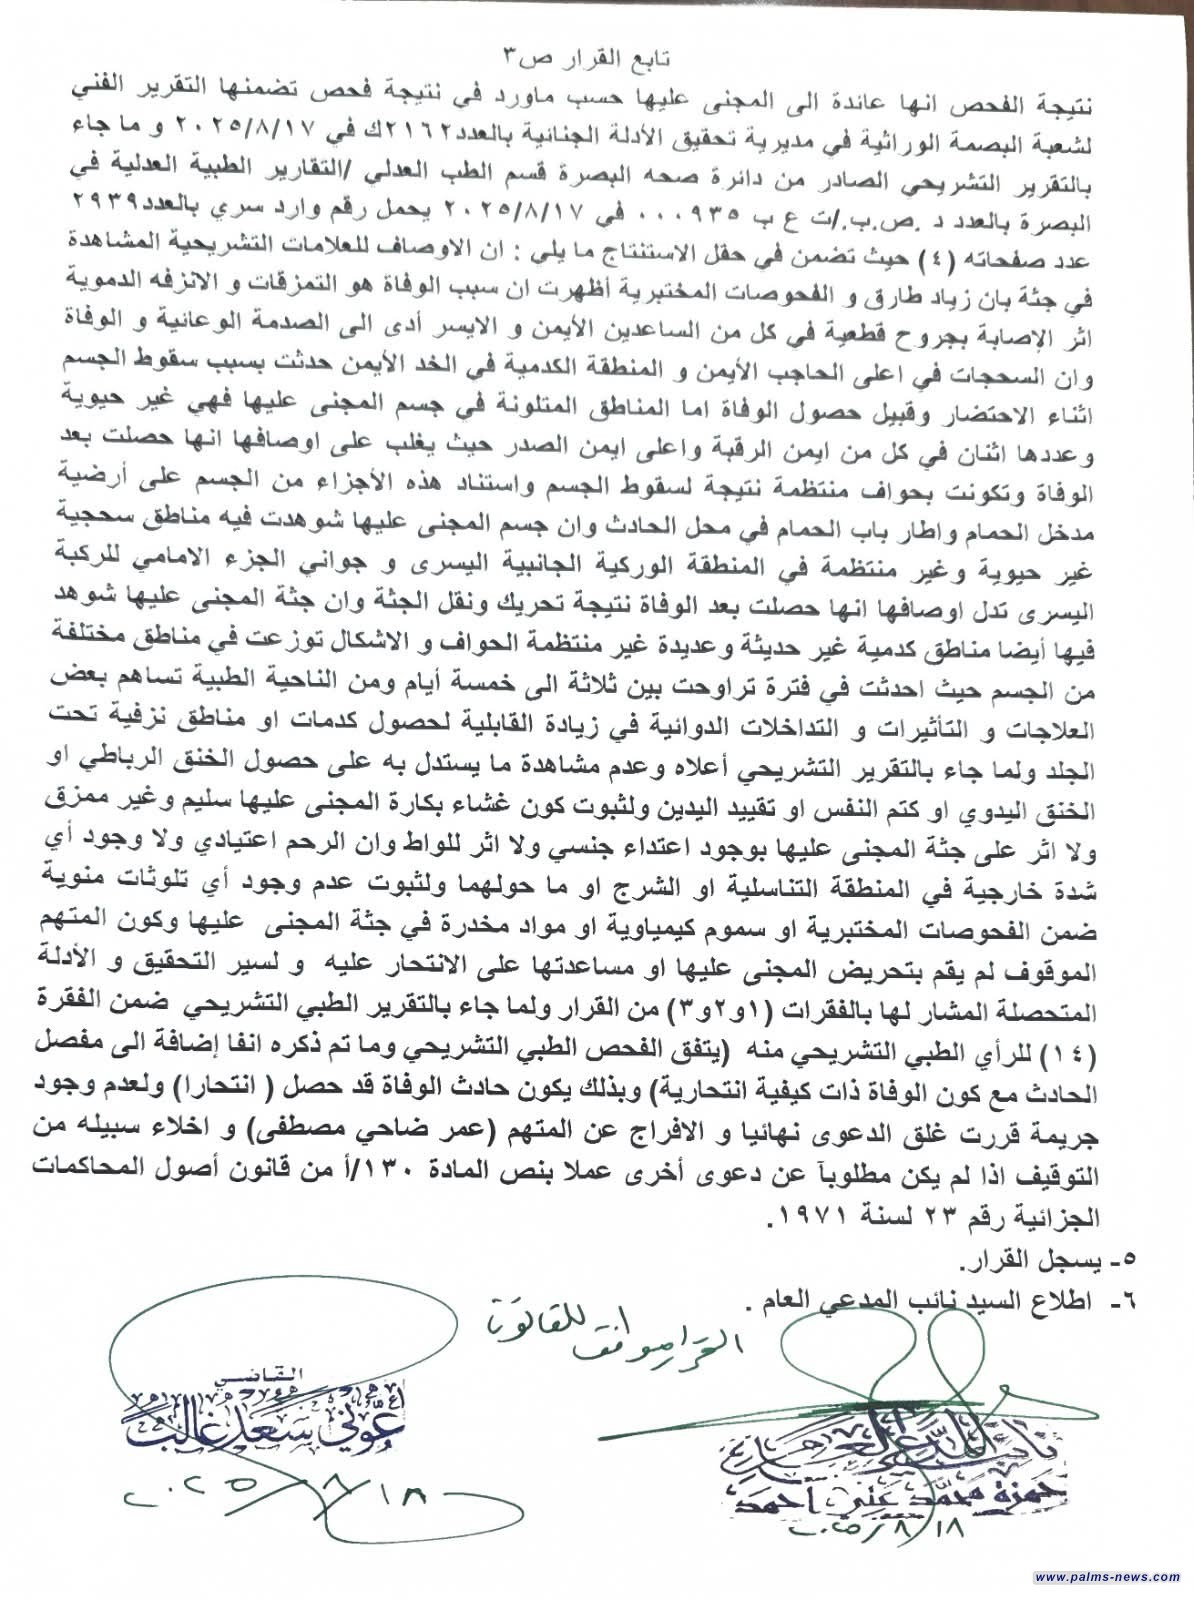 تابع القرار ص٣
نتيجة الفحص انها عائدة الى المجنى عليها حسب ماورد في نتيجة فحص تضمنها التقرير الفني
لشعبة البصمة الوراثية في مديرية تحقيق الأدلة الجنائية بالعدد٢١٦٢ك في ٢٠٢٥/٨/١٧ و ما جاء
بالتقرير التشريحي الصادر من دائرة صحه البصرة قسم الطب العدلي /التقارير الطبية العدلية في
البصرة بالعدد د .ص.ب./ت ع ب ٠٠٠٩٣٥ في ٢٠٢٥/٨/١٧ يحمل رقم وارد سري بالعدد٢٩٣٩
عدد صفحاته (٤) حيث تضمن في حقل الاستنتاج ما يلي : ان الاوصاف للعلامات التشريحية المشاهدة
في جثة بان زياد طارق و الفحوصات المختبرية أظهرت ان سبب الوفاة هو التمزقات و الانزفه الدموية
اثر الإصابة بجروح قطعية في كل من الساعدين الأيمن و الايسر أدى الى الصدمة الوعائية و الوفاة
وان السحجات في اعلى الحاجب الأيمن و المنطقة الكدمية في الخد الأيمن حدثت بسبب سقوط الجسم
اثناء الاحتضار وقبيل حصول الوفاة اما المناطق المتلونة في جسم المجنى عليها فهي غير حيوية
وعددها اثنان في كل من ايمن الرقبة واعلى ايمن الصدر حيث يغلب على اوصافها انها حصلت بعد
الوفاة وتكونت بحواف منتظمة نتيجة لسقوط الجسم واستناد هذه الأجزاء من الجسم على أرضية
مدخل الحمام واطار باب الحمام في محل الحادث وان جسم المجنى عليها شوهدت فيه مناطق سحجية
غير حيوية وغير منتظمة في المنطقة الوركية الجانبية اليسرى و جواني الجزء الامامي للركبة
اليسرى تدل اوصافها انها حصلت بعد الوفاة نتيجة تحريك ونقل الجثة وان جثة المجنى عليها شوهد
فيها أيضا مناطق كدمية غير حديثة وعديدة غير منتظمة الحواف و الاشكال توزعت في مناطق مختلفة
من الجسم حيث احدثت في فترة تراوحت بين ثلاثة الى خمسة أيام ومن الناحية الطبية تساهم بعض
العلاجات و التأثيرات و التداخلات الدوائية في زيادة القابلية لحصول كدمات او مناطق نزفية تحت
الجلد ولما جاء بالتقرير التشريحي أعلاه وعدم مشاهدة ما يستدل به على حصول الخنق الرباطي او
الخنق اليدوي او كتم النفس او تقييد اليدين ولثبوت كون غشاء بكارة المجنى عليها سليم وغير ممزق
ولا اثر على جثة المجنى عليها بوجود اعتداء جنسي ولا اثر للواط وان الرحم اعتيادي ولا وجود أي
شدة خارجية في المنطقة التناسلية او الشرج او ما حولهما ولثبوت عدم وجود أي تلوثات منوية
ضمن الفحوصات المختبرية او سموم كيمياوية او مواد مخدرة في جثة المجنى عليها وكون المتهم
الموقوف لم يقم بتحريض المجنى عليها او مساعدتها على الانتحار عليه و لسير التحقيق و الأدلة
المتحصلة المشار لها بالفقرات (١و٢و٣) من القرار ولما جاء بالتقرير الطبي التشريحي ضمن الفقرة
(١٤) للرأي الطبي التشريحي منه (يتفق الفحص الطبي التشريحي وما تم ذكره انفا إضافة الى مفصل
الحادث مع كون الوفاة ذات كيفية انتحارية) وبذلك يكون حادث الوفاة قد حصل ( انتحارا) ولعدم وجود
جريمة قررت غلق الدعوى نهائيا و الافراج عن المتهم (عمر ضاحي مصطفى) و اخلاء سبيله من
التوقيف اذا لم يكن مطلوبآ عن دعوى أخرى عملا بنص المادة ١٣٠/أ من قانون أصول المحاكمات
الجزائية رقم ٢٣ لسنة ١٩٧١.
٥- يسجل القرار.
٦- اطلاع السيد نائب المدعي العام .
القرار موافق للقانون
القاضي
عوني سعد غالب
٢٠٢٥/٨/١٨
نائب المدعي العام
حمزة محمد غني احمد
٢٠٢٥/٨/١٨
www.palms-news.com